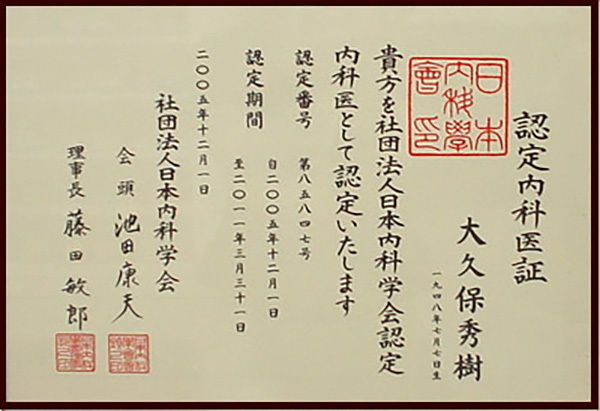 認定内科医証
大久保秀樹
一九四八年七月七日生
日本
内科學
會印
貴方を社団法人日本内科学会認定
内科医として認定いたします
認定番号 第八五八四七号
認定期間 自二〇〇五年十二月一日
至二〇一一年三月三十一日
二〇〇五年十二月一日
社団法人日本内科学会
会頭 池田康夫
理事長 藤田敏郎